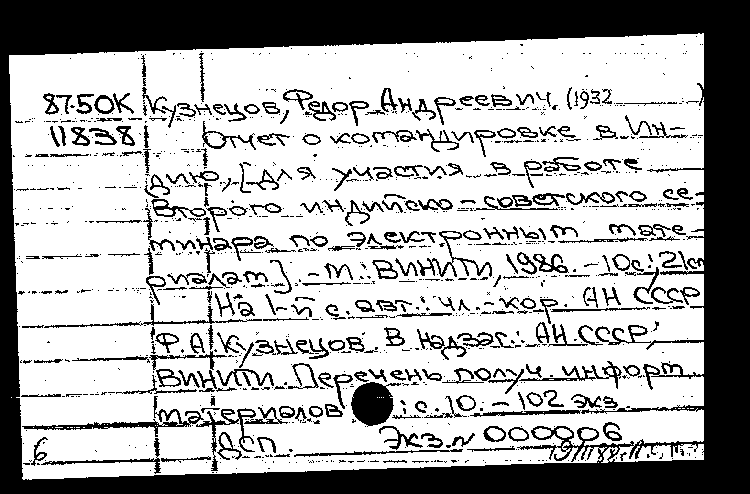 87-50К Кузнецов, Федор Андреевич. (1932 )
11838 Отчет о командировке в Ин-
дию, [для участия в работе
Второго индийско-советского се-
минара по электронным мате-
риалам]. - М.: ВИНИТИ, 1986. - 10с.; 21см
На 1-й с. авт.: чл.-кор. АН СССР
Ф.А. Кузнецов. В надзаг.: АН СССР,
ВИНИТИ. Перечень получ. информ.
материалов : с. 10. - 102 экз.
6 ДСП. Экз. N 000006